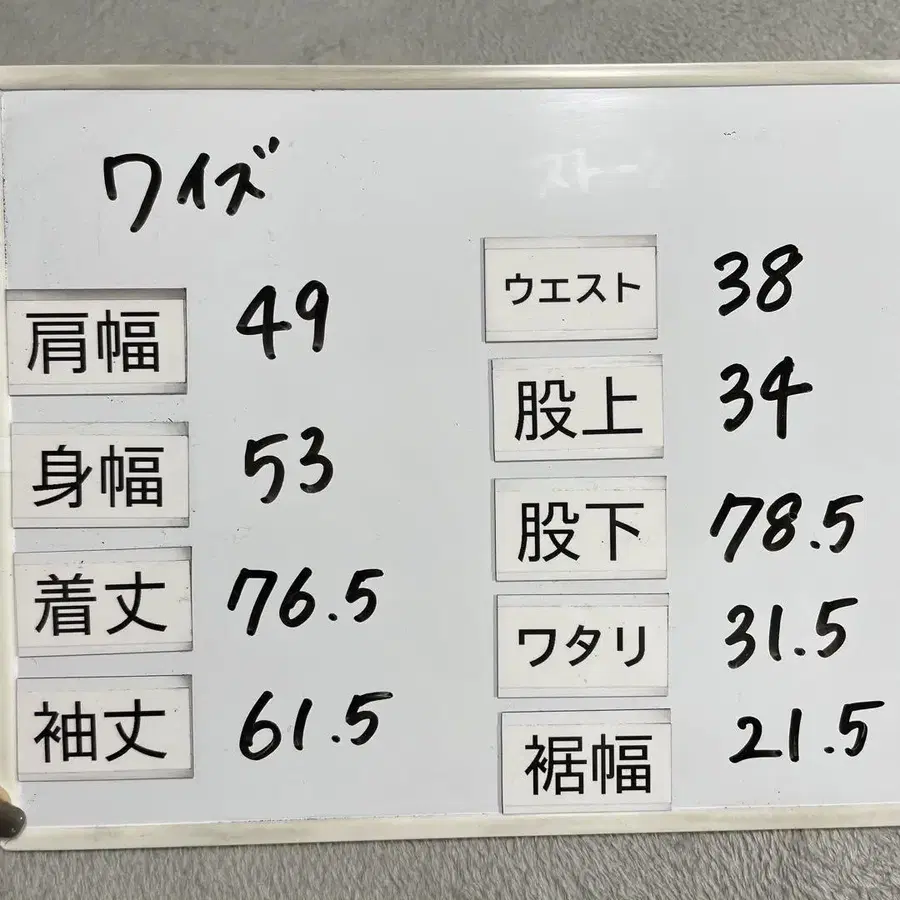 ワイズ
肩幅 49
身幅 53
着丈 76.5
袖丈 61.5
ウエスト 38
股上 34
股下 78.5
ワタリ 31.5
裾幅 21.5